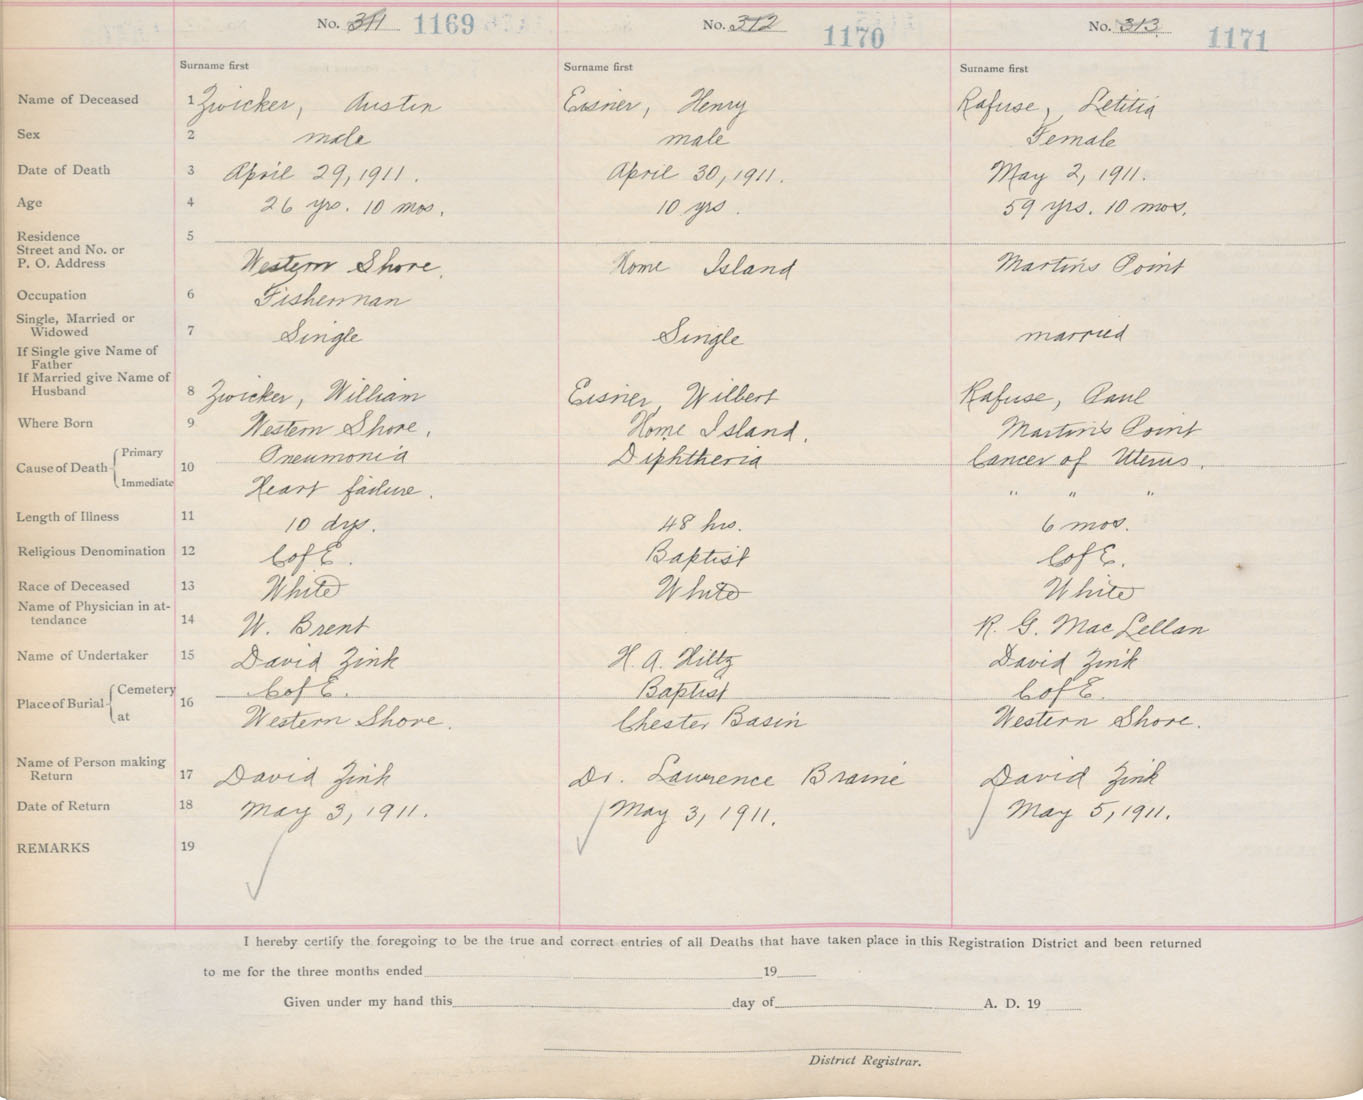 No. 311 1169 No. 312 1170 No. 313 1171
Surname first Surname first Surname first
Name of Deceased 1 Zwicker, Austin Eisner, Henry Rafuse, Letitia
Sex 2 male male Female
Date of Death 3 April 29, 1911. April 30, 1911. May 2, 1911.
Age 4 26 yrs. 10 mos. 10 yrs. 59 yrs. 10 mos.
Residence 5
Street and No. or
P. O. Address Western Shore. Home Island Martin's Point
Occupation 6 Fisherman
Single, Married or
Widowed 7 Single Single married
If Single give Name of
Father
If Married give Name of
Husband 8 Zwicker, William Eisner, Wilbert Rafuse, Paul
Where Born 9 Western Shore. Home Island. Martin's Point
Cause of Death Primary 10 Pneumonia Diphtheria Cancer of Uterus.
Immediate Heart failure. " " "
Length of Illness 11 10 dys. 48 hrs. 6 mos.
Religious Denomination 12 C of E. Baptist C of E.
Race of Deceased 13 White White White
Name of Physician in at-
tendance 14 W. Brent R. G. MacLellan
Name of Undertaker 15 David Zink H. A. Hiltz David Zink
Place of Burial Cemetery 16 C of E. Baptist C of E.
at Western Shore. Chester Basin Western Shore.
Name of Person making
Return 17 David Zink Dr. Lawrence Braine David Zink
Date of Return 18 May 3, 1911. May 3, 1911. May 5, 1911.
REMARKS 19
I hereby certify the foregoing to be the true and correct entries of all Deaths that have taken place in this Registration District and been returned
to me for the three months ended 19
Given under my hand this day of A. D. 19
District Registrar.